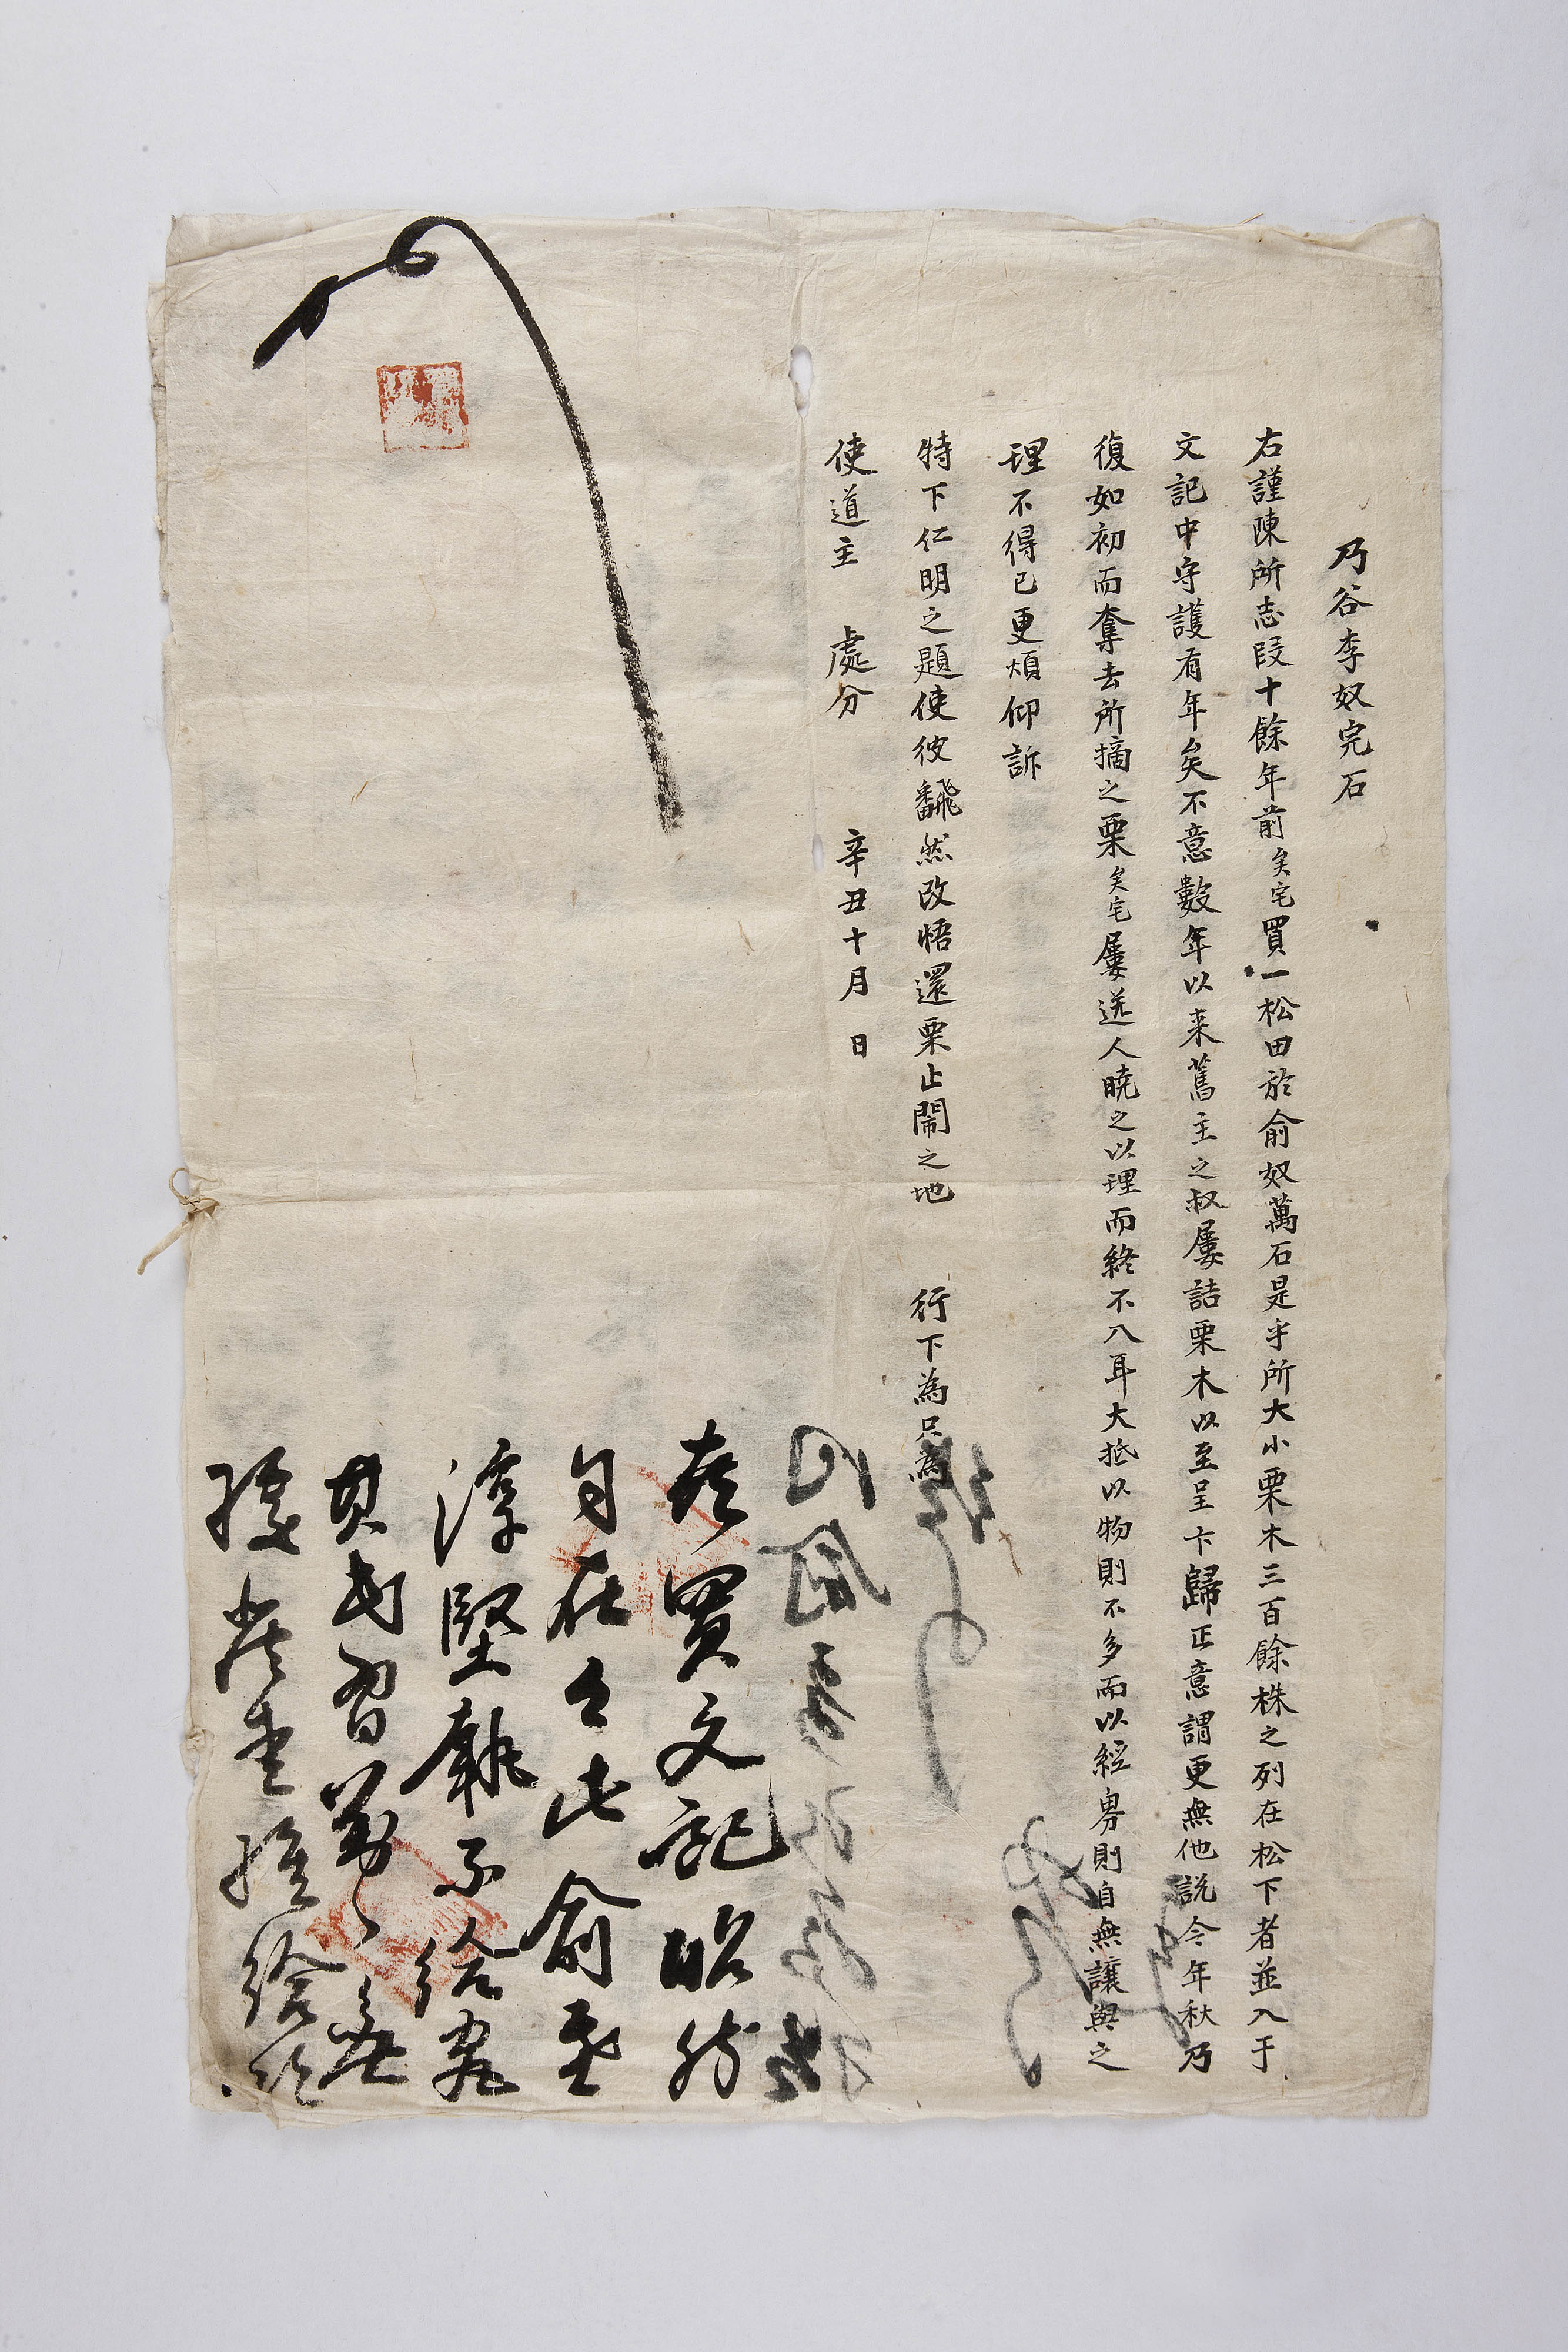 乃谷李奴完石
右謹陳所志段十餘年前矣宅買一松田於俞奴萬石是乎所大小栗木三百餘株之列在松下者並入于
文記中守護有年矣不意數年以来舊主之叔屢詰栗木以至呈卞歸正意謂更無他說今年秋乃
復如初而奪去所摘之栗矣宅屢送人曉之以理而終不入耳大抵以物則不多而以經界則自無讓與之
理不得已更煩仰訴
特下仁明之題使彼飜然改悟還栗止鬧之地 行下為只為
使道主 處分 辛丑十月 日
買文記昭然
自在今此俞
淳堅執不給
民習萬萬
推給